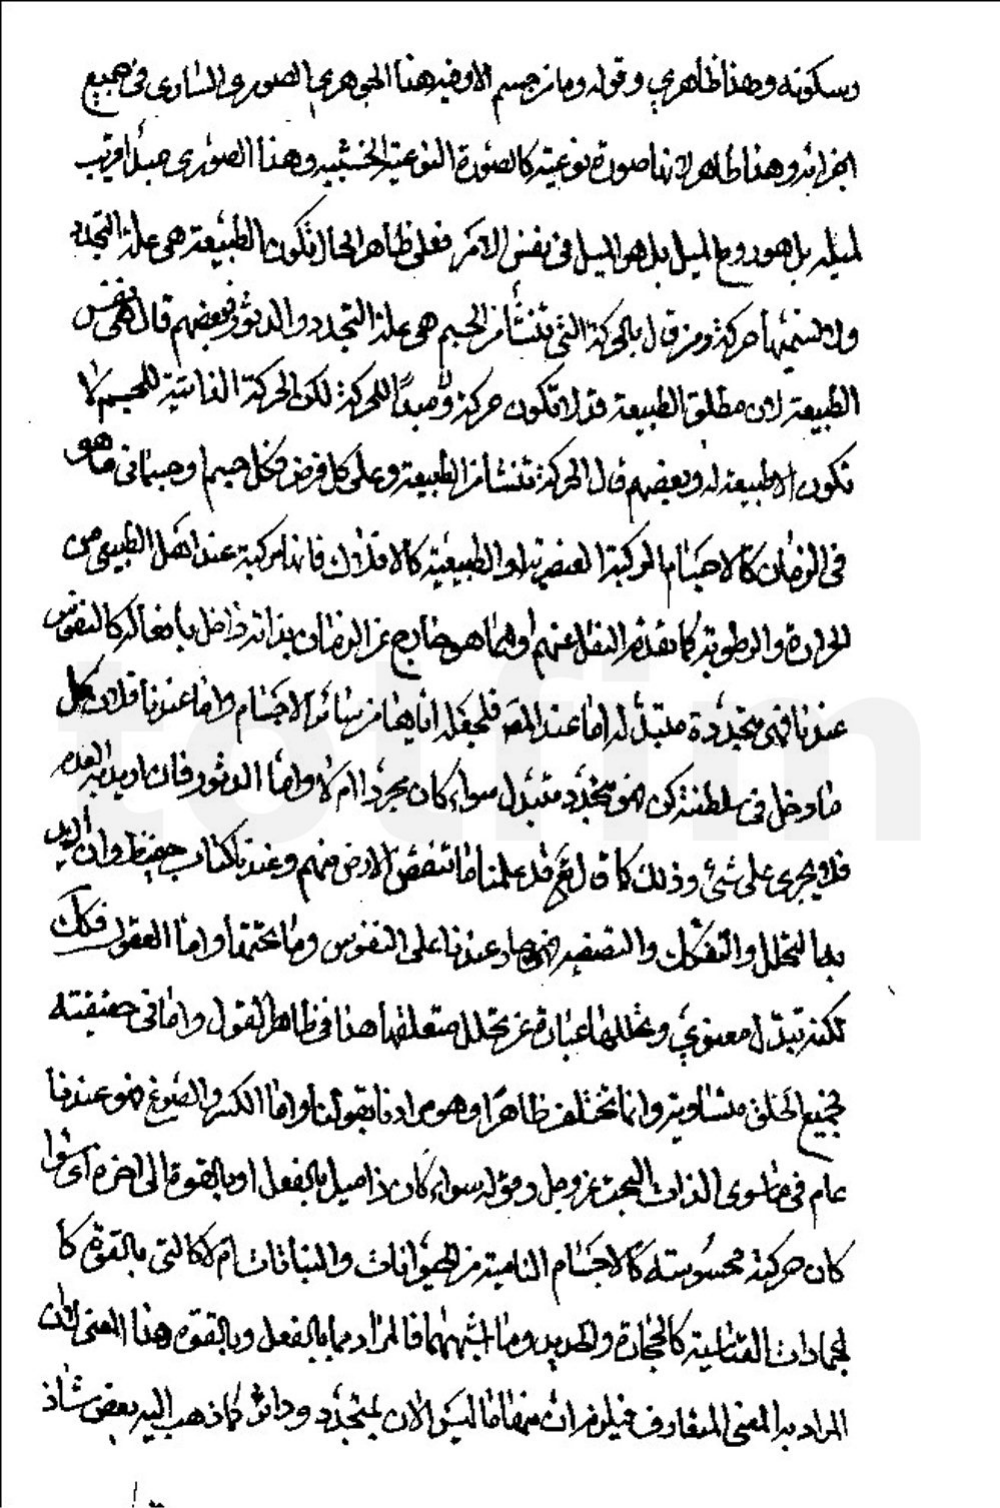 وسكونه وهذا ظاهري وقوله وما من جسم الا وفيه هذا الجوهري الصوري الساري في جميع
اجزائه وهذا ظاهر لانها صورة نوعية كالصورة النوعية الخشبية وهذا الصوري مبدأ قريب
لميله بل هو روح الميل بل هو الميل في نفس الامر فعلى ظاهر الحال تكون الطبيعة هي علة التجدد
ولا نسميها حركة ومن قال بالحركة التي تنشأ من الجسم هي علة التجدد والدثور وبعضهم قال هي نفس
الطبيعة لان مطلق الطبيعة قد لا تكون حركة ولا مبدأ للحركة لكن الحركة الذاتية للجسم لا
تكون الا طبيعة له وبعضهم قال الحركة تنشأ من الطبيعة وعلى كل فرض فكل جسم وجسماني مما هو
في الزمان كالاجسام المركبة العنصرية او الطبيعية كالافلاك فانها مركبة عند اهل الطبيعي من
الحرارة والرطوبة كما تقدم النقل عنهم او مما هو خارج عن الزمان بذاته داخل بافعاله كالنفوس
عندنا فهي متجددة متبدلة اما عند المص فلجعله اياها من سائر الاجسام واما عندنا فلان كل
ما دخل في سلطنة كن فهو متجدد متبدل سواء كان مجردا ام لا واما الدثور فان اريد به العدم
فلا يجري على شئ وذلك كما قال تع قد علمنا ما تنقص الارض منهم وعندنا كتاب حفيظ وان اريد
به التحلل والتفكك والتصفية فهو جار عندنا على النفوس وما تحتها واما العقول فكك
لكنه تبدل معنوي وتحللها عبارة عن تحلل متعلقها هذا في ظاهر القول واما في حقيقته
فجميع الخلق متساوية وانما تختلف ظاهرا وهو مرادنا بقولنا واما الكسر والصوغ فهو عندنا
عام في ما سوى الذات البحت عز وجل وقوله سواء كان ذا ميل بالفعل او بالقوة الى اخره اى سواء
كان حركته محسوسة كالاجسام النامية من الحيوانات والنباتات ام لا كالتي بالقوة كا
لجمادات القاسية كالحجارة والحديد وما اشبههما فالمراد بما بالفعل وبالقوة هذا المعنى لان
المراد به المعنى المتعارف فيلزم ان منها ما ليس الان بمتجدد ودائر كما ذهب اليه بعض شاذ
totfim